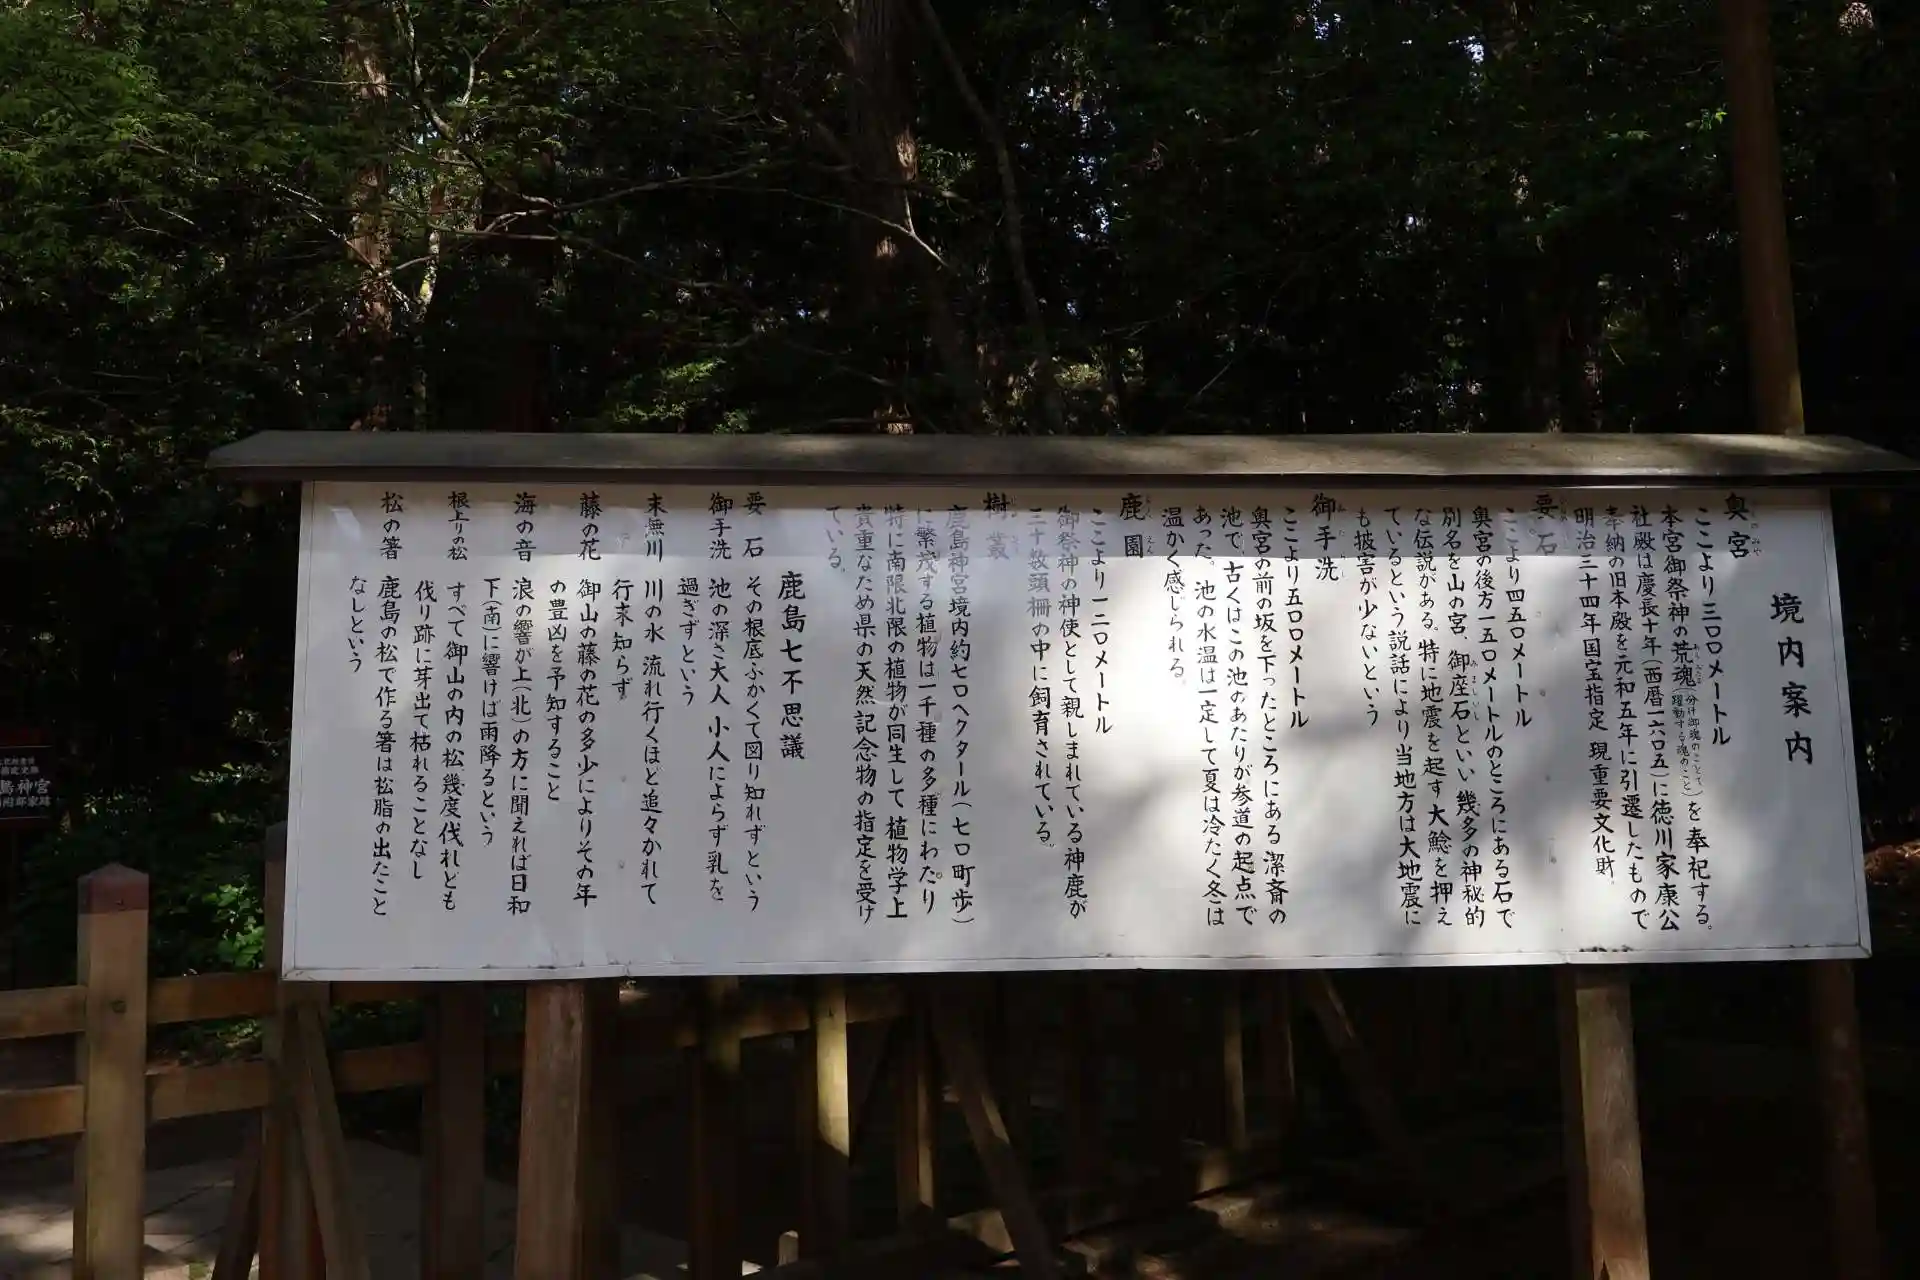 境内案内
奥宮
ここより三〇〇メートル
本宮御祭神の荒魂(分け御魂のことで躍動する魂のこと)を奉祀する。
社殿は慶長十年(西暦一六〇五)に徳川家康公
奉納の旧本殿を元和五年に引遷したもので
明治三十四年国宝指定 現重要文化財。
要石
ここより四五〇メートル
奥宮の後方一五〇メートルのところにある石で
別名を山の宮、御座石といい幾多の神秘的
な伝説がある。特に地震を起す大鯰を押え
ているという説話により当地方は大地震に
も披害が少ないという
御手洗
ここより五〇〇メートル
奥宮の前の坂を下ったところにある潔斎の
池で、古くはこの池のあたりが参道の起点で
あった。池の水温は一定して夏は冷たく冬は
温かく感じられる。
鹿園
ここより一二〇メートル
御祭神の神使として親しまれている神鹿が
三十数頭柵の中に飼育されている。
樹叢
鹿島神宮境内約七〇ヘクタール(七〇町歩)
に繁茂する植物は一千種の多種にわたり
特に南限北限の植物が同生して植物学上
貴重なため県の天然記念物の指定を受け
ている。
鹿島七不思議
要石 その根底ふかくて図り知れずという
御手洗 池の深さ大人 小人によらず乳を
過ぎずという
末無川 川の水 流れ行くほど追々かれて
行末知らず
藤の花 御山の藤の花の多少によりその年
の豊凶を予知すること
海の音 浪の響が上(北)の方に聞えれば日和
下(南)に響けば雨降るという
根上りの松 すべて御山の内の松幾度伐れども
伐り跡に芽出て枯れることなし
松の箸 鹿島の松で作る箸は松脂の出たこと
なしという
島神宮